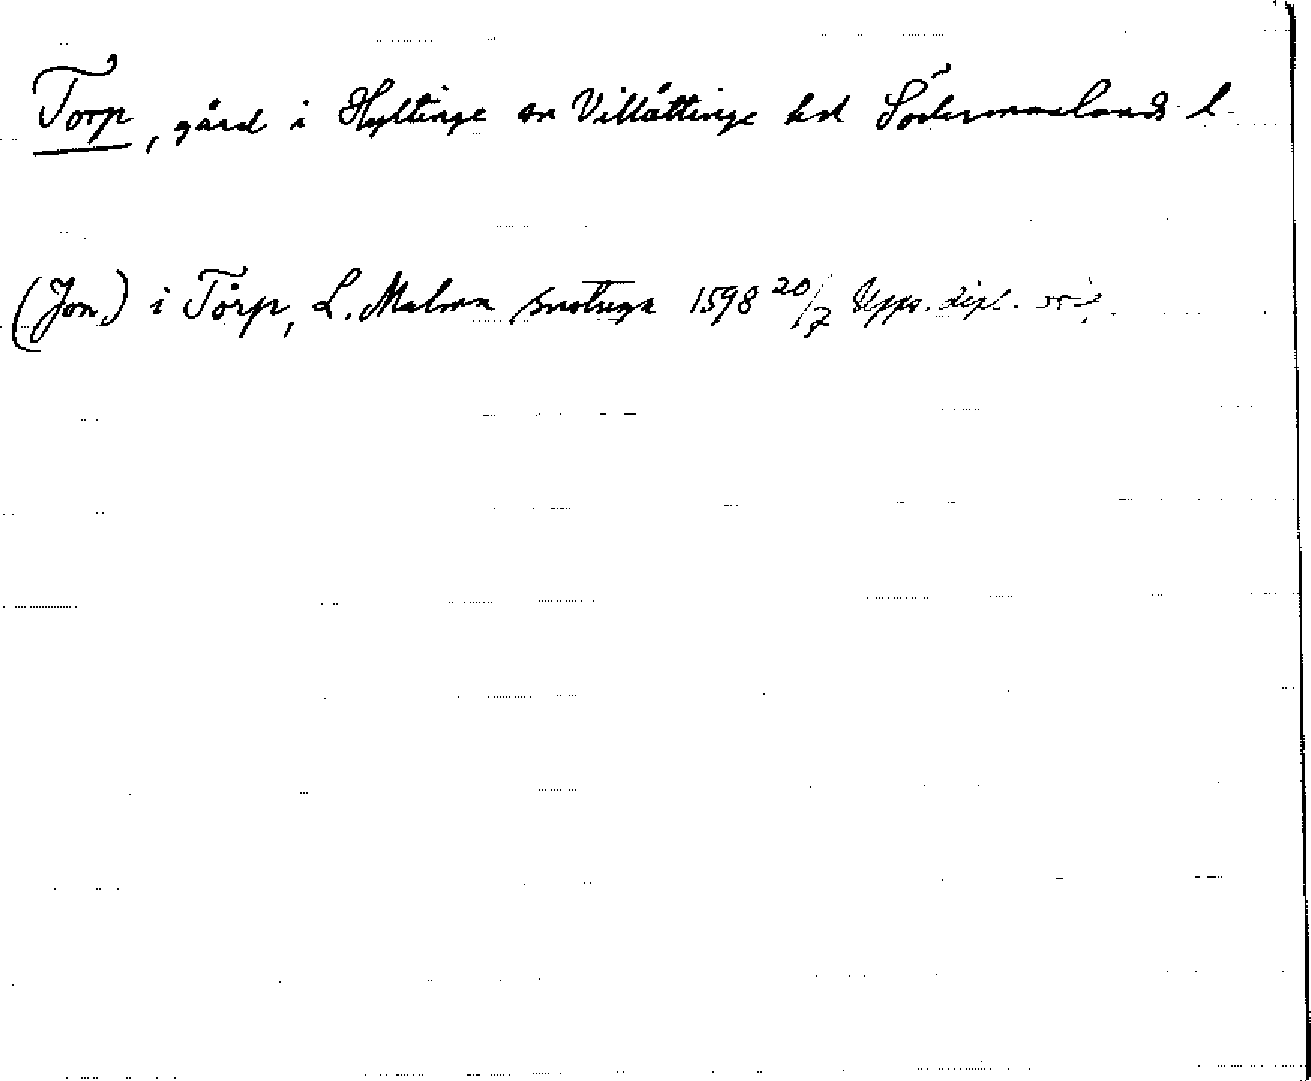 Torp, gård i Hyltinge sn Villåttinge hd Södermanlands l
(Jon) i Törp, L. Malma 1598 20/7 Upps. dipl.